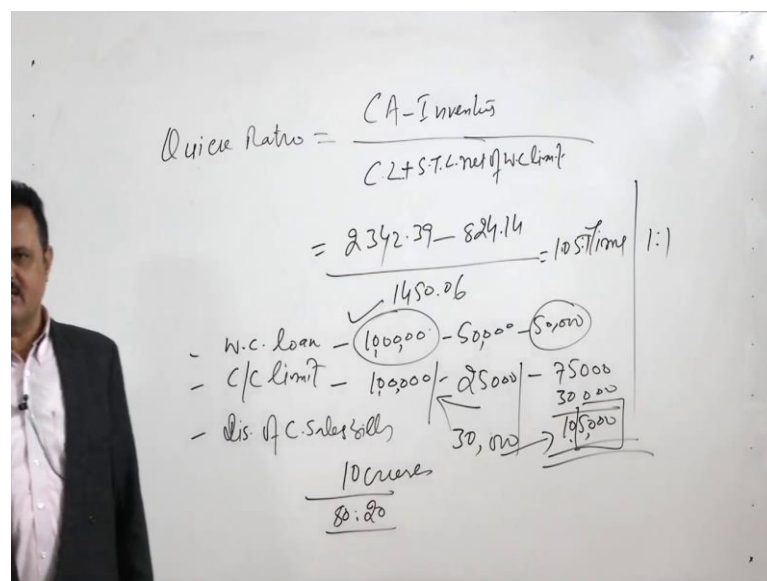 CA-Inventis
Quick Ratio =
C.L+S.T.L. net of W.C limit
= 2342.39 - 824.14 = 1.05 Time 1:1
1450.06
- W.C. Loan - 1,00,000 - 50,000 - 50,000
- C/C limit - 1,00,000 - 25000 - 75000
30,000
- Dis. of C. Sales bills 30,000 1,05,000
10 crores
80:20